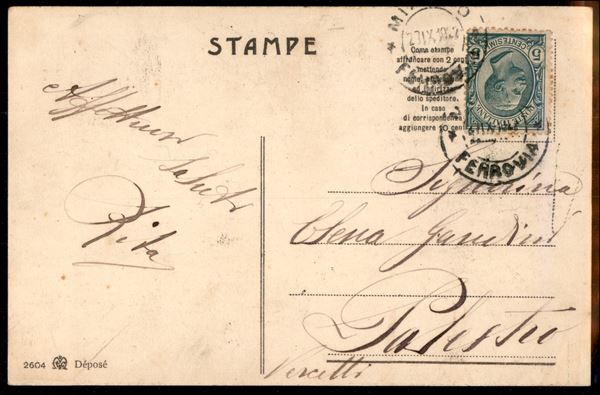 STAMPE
Come stampe
affrancare con 2 cent.
mettendo
nome
ed indirizzo
dello speditore.
In caso
di corrispondenza
aggiungere 10 cent.
5 CENTESIMI 5
POSTE ITALIANE
FERROVIA
FERROVIA
Affettuosi
Saluti
Rita
Signorina
Elena Gandini
Palestro
Vercelli
2604 Déposé